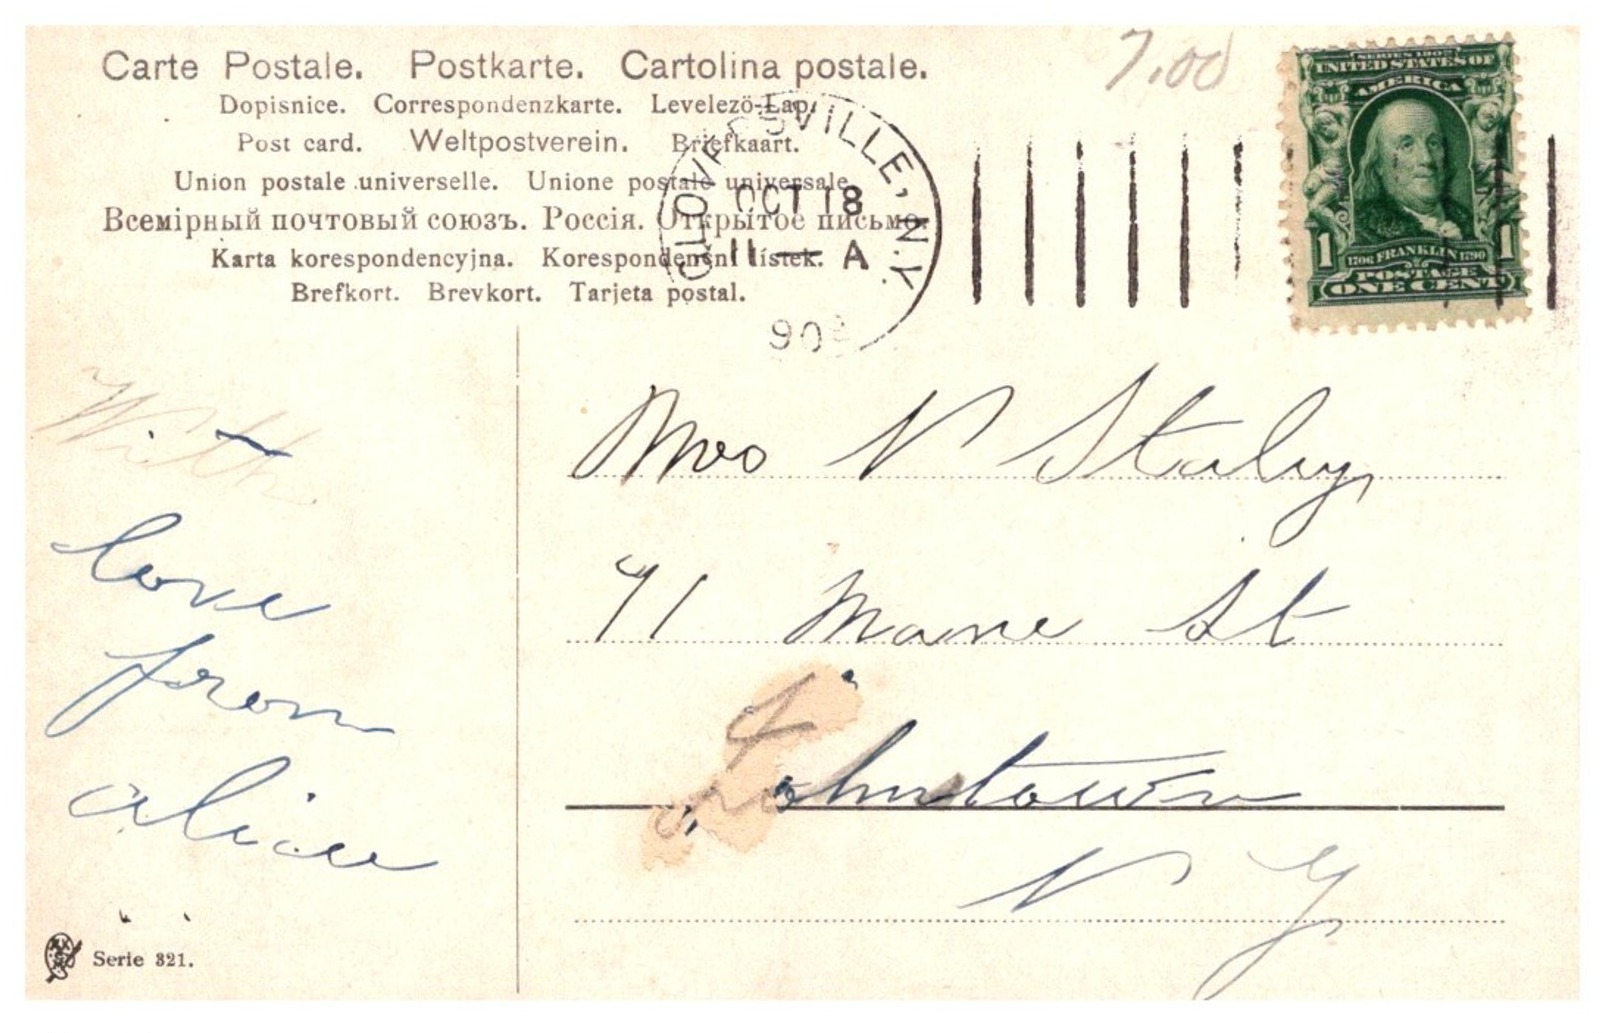 Carte Postale. Postkarte. Cartolina postale.
Dopisnice. Correspondenzkarte. Levelező-Lap.
Post card. Weltpostverein. Briefkaart.
Union postale universelle. Unione postale universale
Всемірный почтовый союзъ. Россія. Открытое письмо.
Karta korespondencyjna. Korespondenční lístek.
Brefkort. Brevkort. Tarjeta postal.
7.00
GLOVERSVILLE, N.Y.
OCT 18
11 — A
SERIES 1902
UNITED STATES OF
AMERICA
1 1706 FRANKLIN 1790 1
POSTAGE
ONE CENT
With
love
from
alice
Mrs N Staley
71 Mane St
Johnstown
N Y
Serie 321.